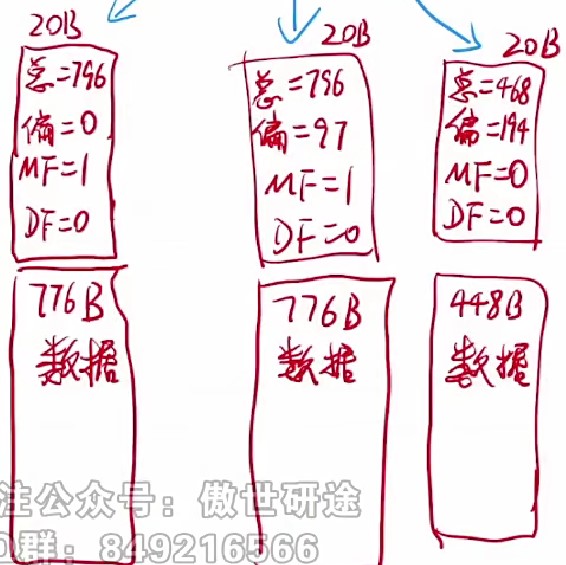 20B
总=796
偏=0
MF=1
DF=0
776B
数据
20B
总=796
偏=97
MF=1
DF=0
776B
数据
20B
总=468
偏=194
MF=0
DF=0
448B
数据
注公众号：傲世研途
Q群：849216566